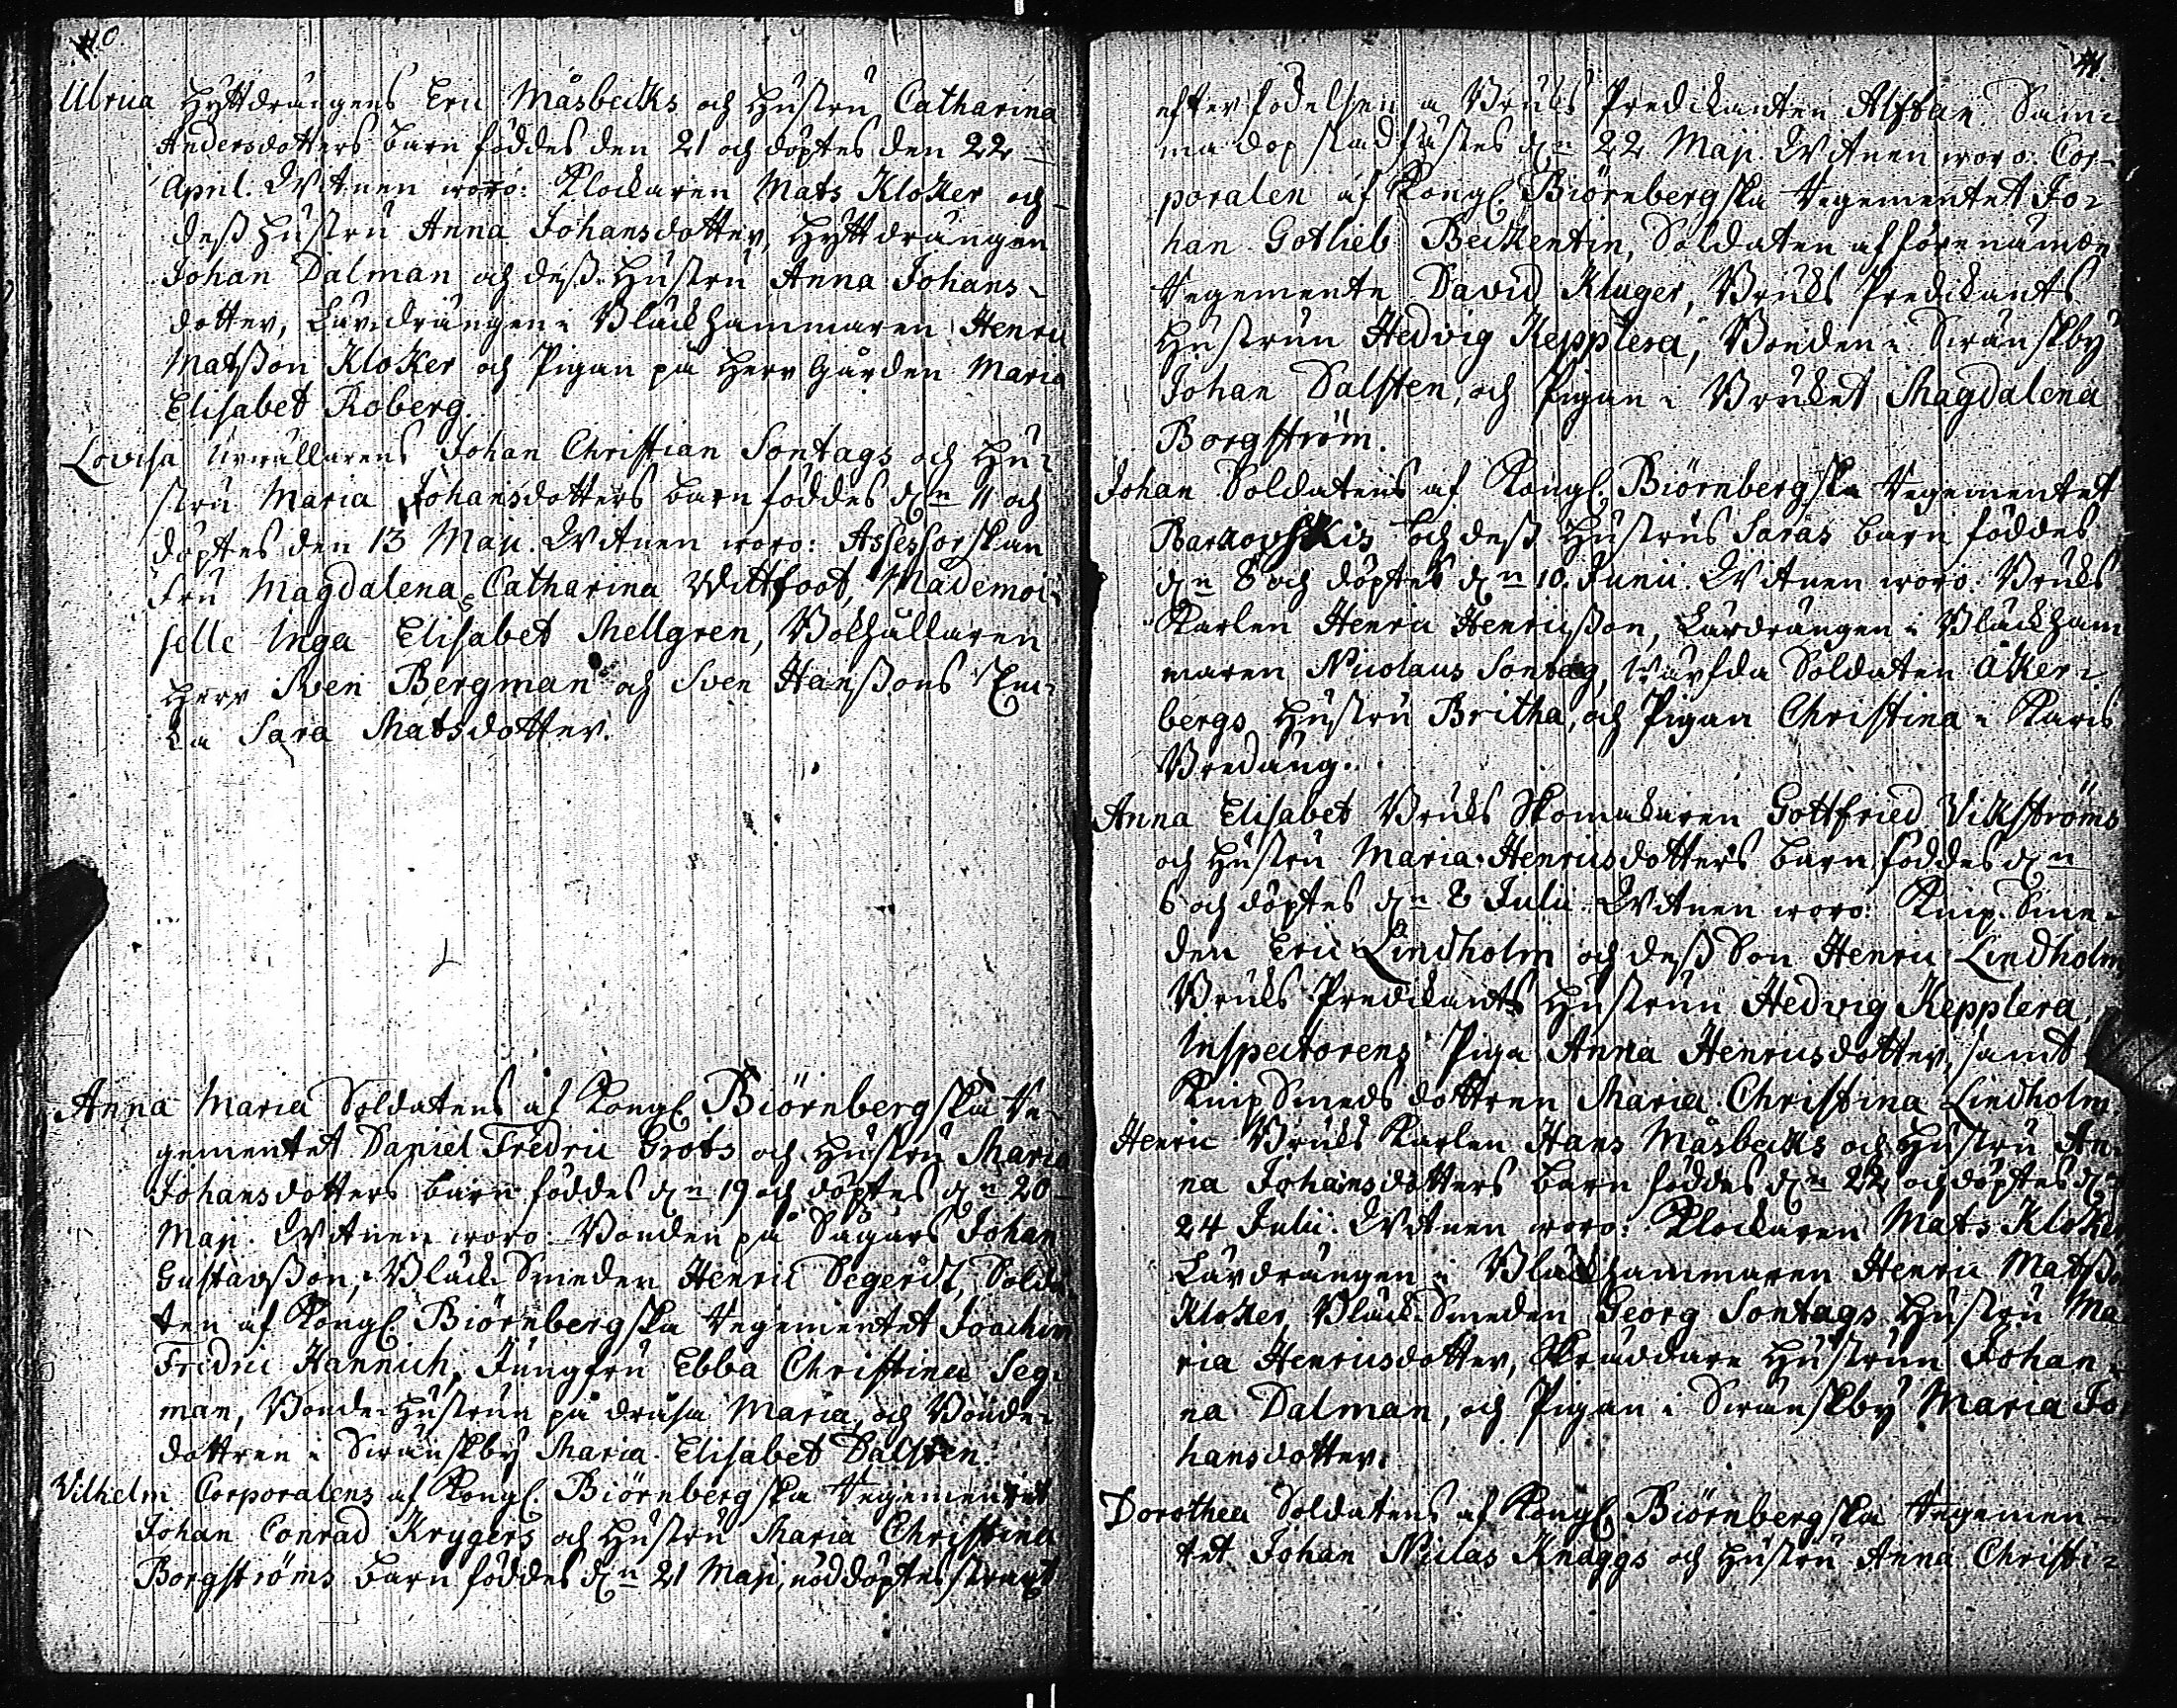 40.
Ulrica Hyttdrängens Eric Måsbecks och Hustru Catharina
Andersdotters barn föddes den 21 och döptes den 22
April. Witnen woro: Klockaren Mats Klocker och
dess Hustru Anna Johansdotter, Hyttdrängen
Johan Dalman och dess Hustru Anna Johans-
dotter, Lärdrängen i Bläckhammaren Henric
Matsson Klocker och Pigan på Herr Gården Maria
Elisabet Roberg.
Lovisa Johan Christian Sontags och Hu-
stru Maria Johansdotters barn föddes den 11 och
döptes den 13 Maji. Witnen woro: Assessorskan
Fru Magdalena Catharina Wittfoot, Mademoi-
selle Inga Elisabet Mellgren, Bokhållaren
Herr Sven Bergman och Sven Hanssons En-
ka Sara Matsdotter.
Anna Maria Soldatens af Kongl. Biörnebergska Re-
gementet Daniel Fredric Grots och Hustru Maria
Johansdotters barn föddes den 19 och döptes den 20
Maji. Witnen woro: Bonden på Sågars Johan
Gustavsson, Bläck Smeden Henric Segerdt, Solda-
ten af Kongl. Biörnebergska Regementet Joachim
Fredric Hannich, Jungfru Ebba Christina Seg-
man, Bonde Hustrun på Maria, och Bonde-
dottren i Swänskby Maria Elisabet Dalsten.
Vilhelm Corporalens af Kongl. Biörnebergska Regementet
Johan Conrad Krygers och Hustru Maria Christina
Borgströms barn föddes den 21 Maji, nöddöptes straxt
41.
efter födelsen a Bruks Predikanten Alftan. Sam-
ma dop stadfästes den 22 Maji. Witnen woro: Cor-
poralen af Kongl. Biörnebergska Regementet Jo-
han Gotlieb Beckentin, Soldaten af förenämde
Regemente David Kluger, Bruks Predikants
Hustrun Hedvig Kepplera, Bonden i Swänskby
Johan Dalsten, och Pigan i Bruket Magdalena
Borgström.
Johan Soldatens af Kongl. Biörnebergska Regementet
Barkovskis och dess Hustrus Saras barn föddes
den 8 och döptes den 10. Junii. Witnen woro: Bruks
Karlen Henric Henricsson, Lärdrängen i Bläckham
maren Nicolaus Sontag, Wärfda Soldaten Åker-
bergs Hustru Britha, och Pigan Christina i Karis
Bredäng.
Anna Elisabet Bruks Skomakaren Gottfried Vikströms
och Hustru Maria Henricsdotters barn föddes den
6 och döptes den 8 Julii. Witnen woro: Knip Sme-
den Eric Lindholm och dess Son Henric Lindholm
Bruks Predikants Hustrun Hedvig Kepplera,
Inspectorens Piga Anna Henricsdotter, samt
Knip Smeds dottren Maria Christina Lindholm.
Henric Bruks Karlen Hans Måsbecks och Hustru An-
na Johansdotters barn föddes den 22 och döptes den
24 Julii. Witnen woro: Klockaren Mats Klocker
Lärdrängen i Bläckhammaren Henric Matsso
Klocker, Bläck Smeden Georg Sontags Hustru Ma
ria Henricsdotter, Skräddare Hustrun Johan-
na Dalman, och Pigan i Swänskby Maria Jo
hansdotter.
Dorothea Soldatens af Kongl. Biörnebergska Regemen-
tet Johan Niclas Knaggs och Hustru Anna Christi-